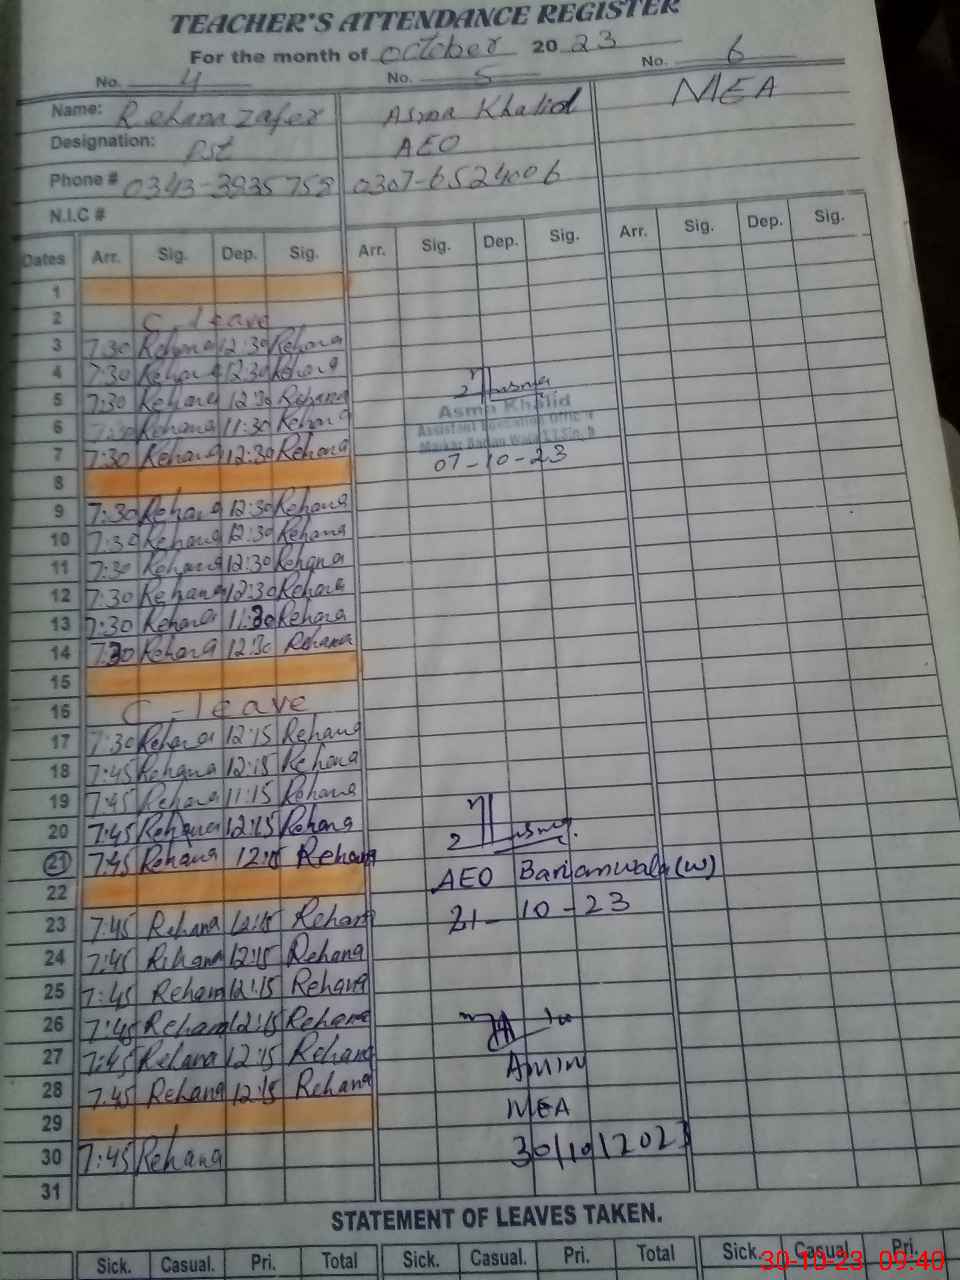 TEACHER'S ATTENDANCE REGISTER
For the month of October 2023
No. 4 No. 5 No. 6
Name: Rehana zafer Asma Khalid MEA
Designation: Pst AEO
Phone # 0343-3935758 0307-6524006
N.I.C #
Dates Arr. Sig. Dep. Sig. Arr. Sig. Dep. Sig. Arr. Sig. Dep. Sig.
1
2 C leave
3 7:30 Rehana 12:30 Rehana
4 7:30 Rehana 12:30 Rehana
5 7:30 Rehana 12:30 Rehana
Asma Khalid
6 7:30 Rehana 11:30 Rehana
Assistant Education Officer
7 7:30 Rehana 12:30 Rehana
07-10-23
8
9 7:30 Rehana 12:30 Rehana
10 7:30 Rehana 12:30 Rehana
11 7:30 Rehana 12:30 Rehana
12 7:30 Rehana 12:30 Rehana
13 7:30 Rehana 11:30 Rehana
14 7:30 Rehana 12:30 Rehana
15
16 C-leave
17 7:30 Rehana 12:15 Rehana
18 7:45 Rehana 12:15 Rehana
19 7:45 Rehana 11:15 Rehana
20 7:45 Rehana 12:15 Rehana
21 7:45 Rehana 12:15 Rehana
22 AEO (w)
23 7:45 Rehana 12:15 Rehana 21-10-23
24 7:45 Rehana 12:15 Rehana
25 7:45 Rehana 12:15 Rehana
26 7:45 Rehana 12:15 Rehana
27 7:45 Rehana 12:15 Rehana Amin
28 7:45 Rehana 12:15 Rehana MEA
29
30 7:45 Rehana 30/10/2023
31
STATEMENT OF LEAVES TAKEN.
Sick. Casual. Pri. Total Sick. Casual. Pri. Total Sick. Casual Pri.
30-10-23 09:40